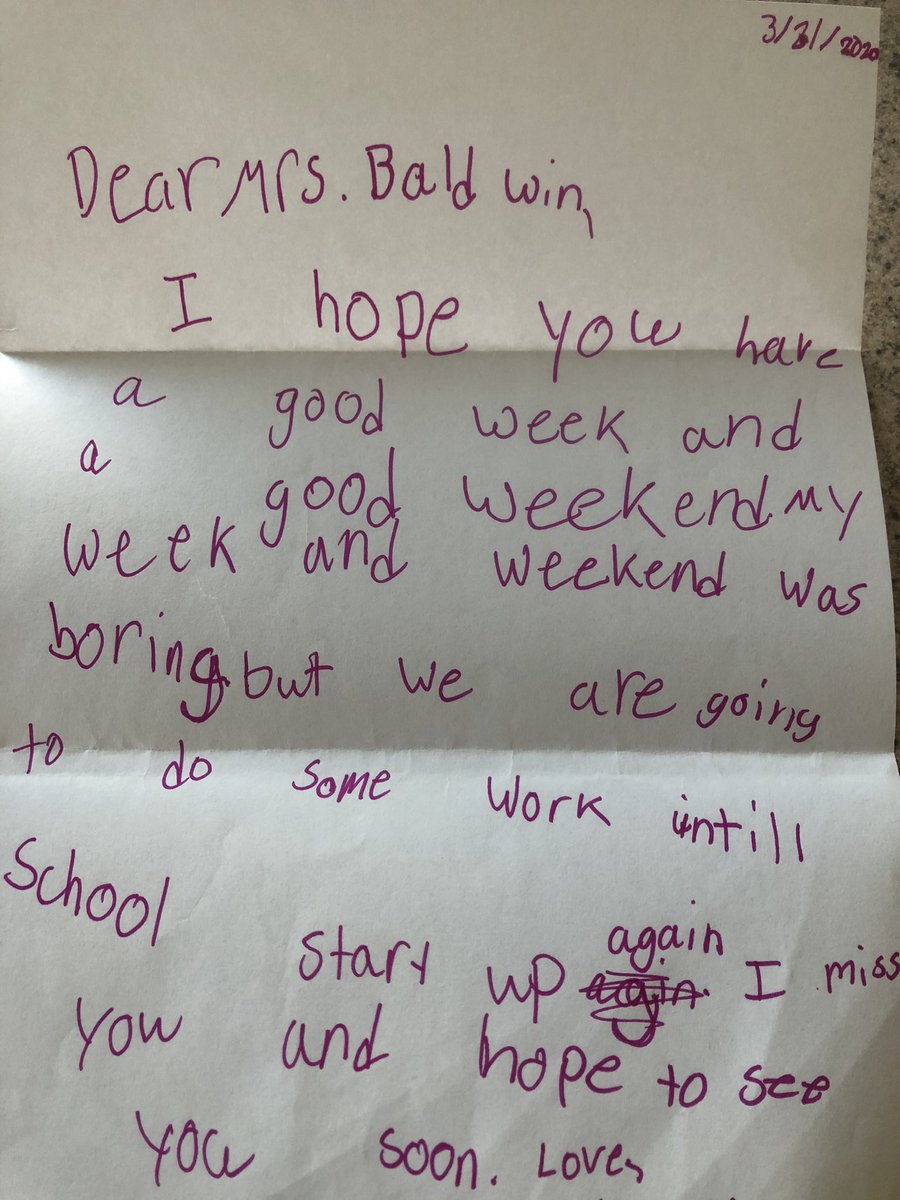 3/31/2020
Dear Mrs. Baldwin,
I hope you have
a good week and
a good weekend. My
week and weekend was
boring. but we are going
to do some work untill
School
start up again I miss
you and hope to see
you soon. Love,